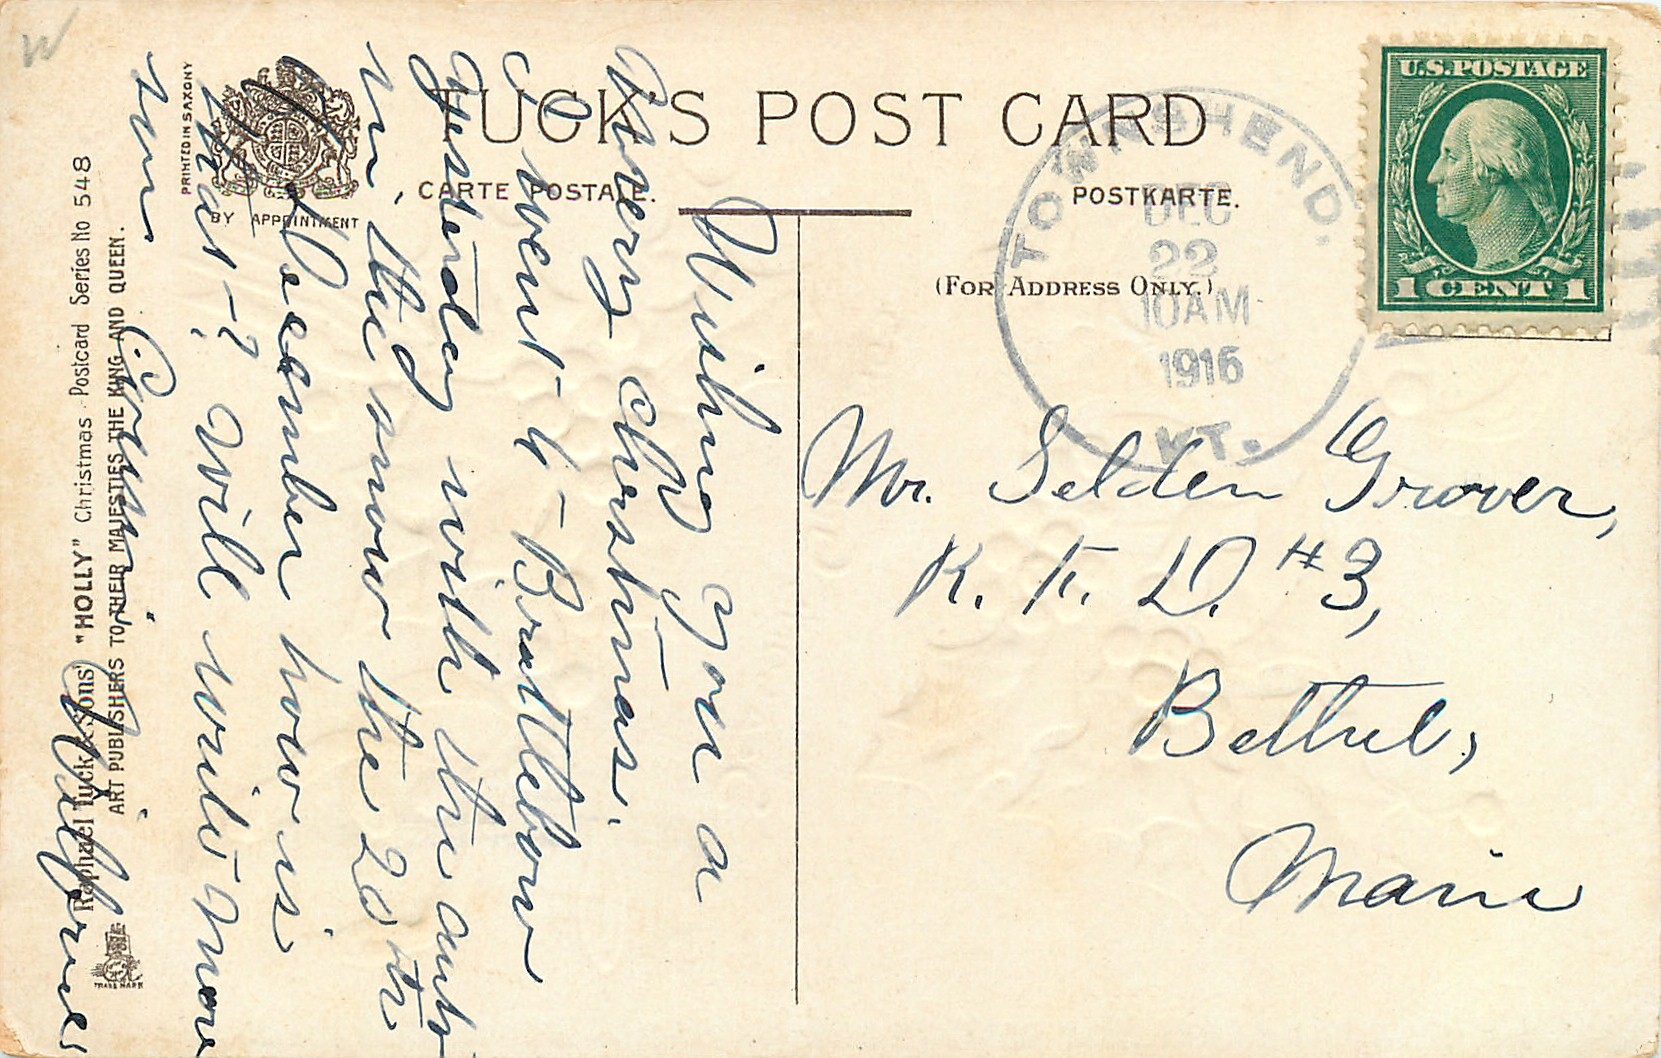 W
TUCK'S POST CARD
CARTE POSTALE.
POSTKARTE.
(FOR ADDRESS ONLY.)
PRINTED IN SAXONY
BY APPOINTMENT
TOWNSHEND.
DEC
22
10AM
1916
VT.
U.S. POSTAGE
1 CENT 1
Mr. Selden Grover,
R. F. D. #3,
Bethel,
Maine
Wishing you a
Merry Christmas.
I went to Brattleboro
yesterday with the auto
in the snow the 20th
of December how is
that? Will write more
soon Cousin
Raphael Tuck & Sons' "HOLLY" Christmas Postcard Series No 548
ART PUBLISHERS TO THEIR MAJESTIES THE KING AND QUEEN.
TRADE MARK